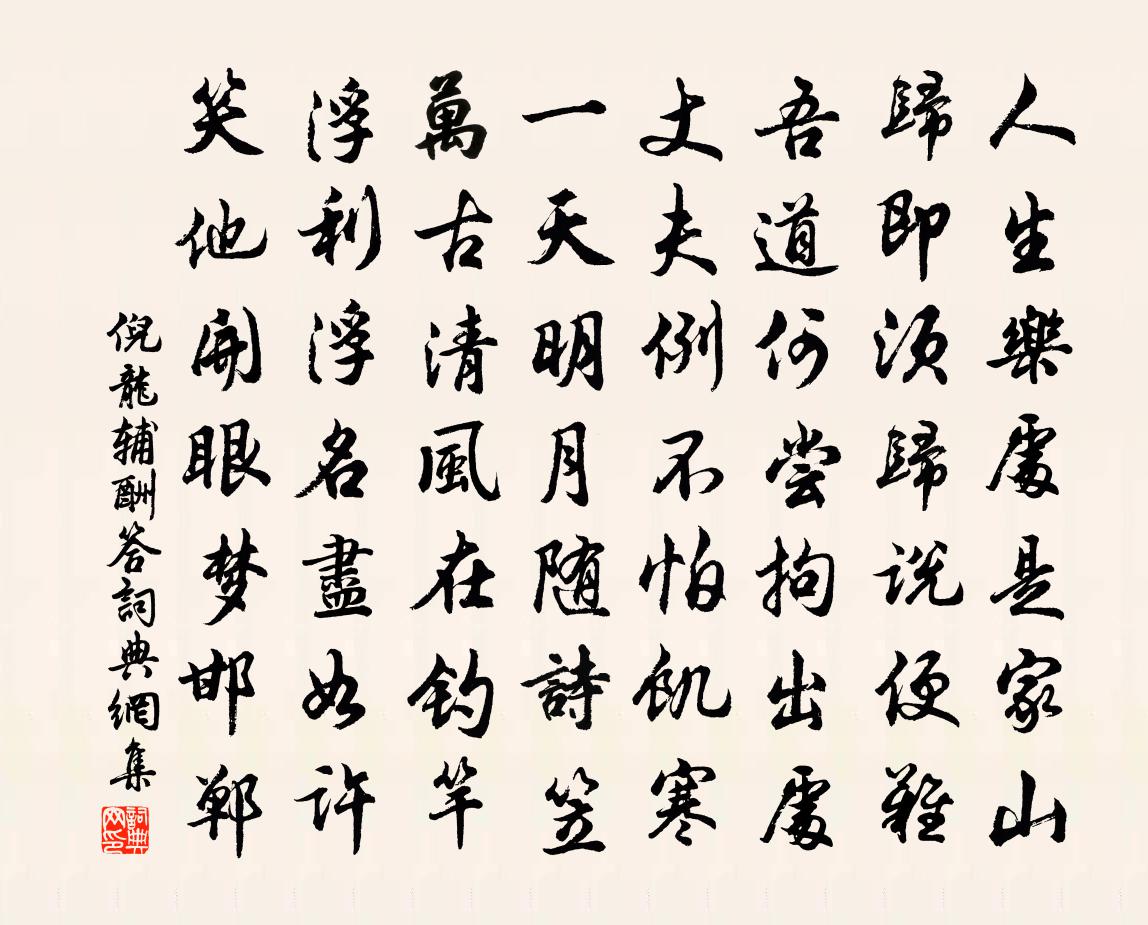 人生樂處是家山
歸即須歸说便難
吾道何尝拘出處
丈夫例不怕飢寒
一天明月随詩笠
萬古清風在釣竿
浮利浮名盡如許
笑他開眼梦邯鄲
倪龍辅酬答詞典網集
詞典网印